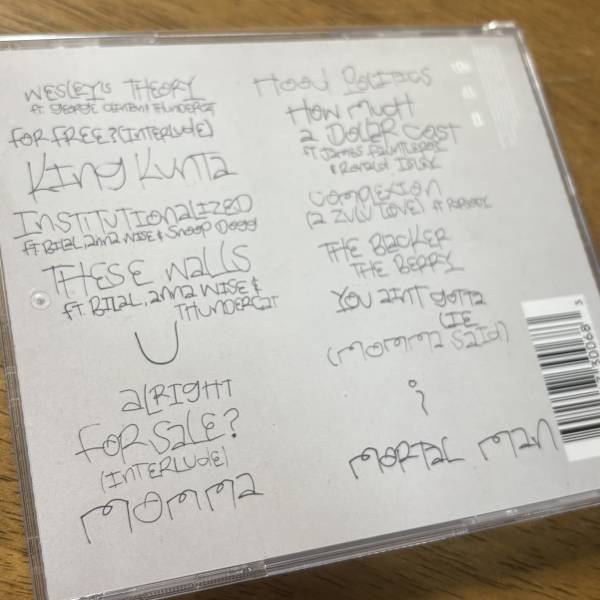 WESLEY'S THEORY
ft GEORGE CLINTON & THUNDERCAT
FOR FREE? (INTERLUDE)
KING KUNTA
INSTITUTIONALIZED
ft BILAL, anna WISE & SNOOP DOGG
THESE WALLS
ft BILAL, anna WISE &
THUNDERCAT
U
alRIGHT
FOR SALE?
(INTERLUDE)
MOMMA
HOOD POLITICS
HOW MUCH
a DOLLAR COST
ft JAMES FAUNTLEROY
& RONALD ISLEY
COMPLEXION
(a ZULU LOVE) ft RAPSODY
THE BLACKER
THE BERRY
YOU AINT GOTTA
LIE
(MOMMA SAID)
i
MORTAL MAN